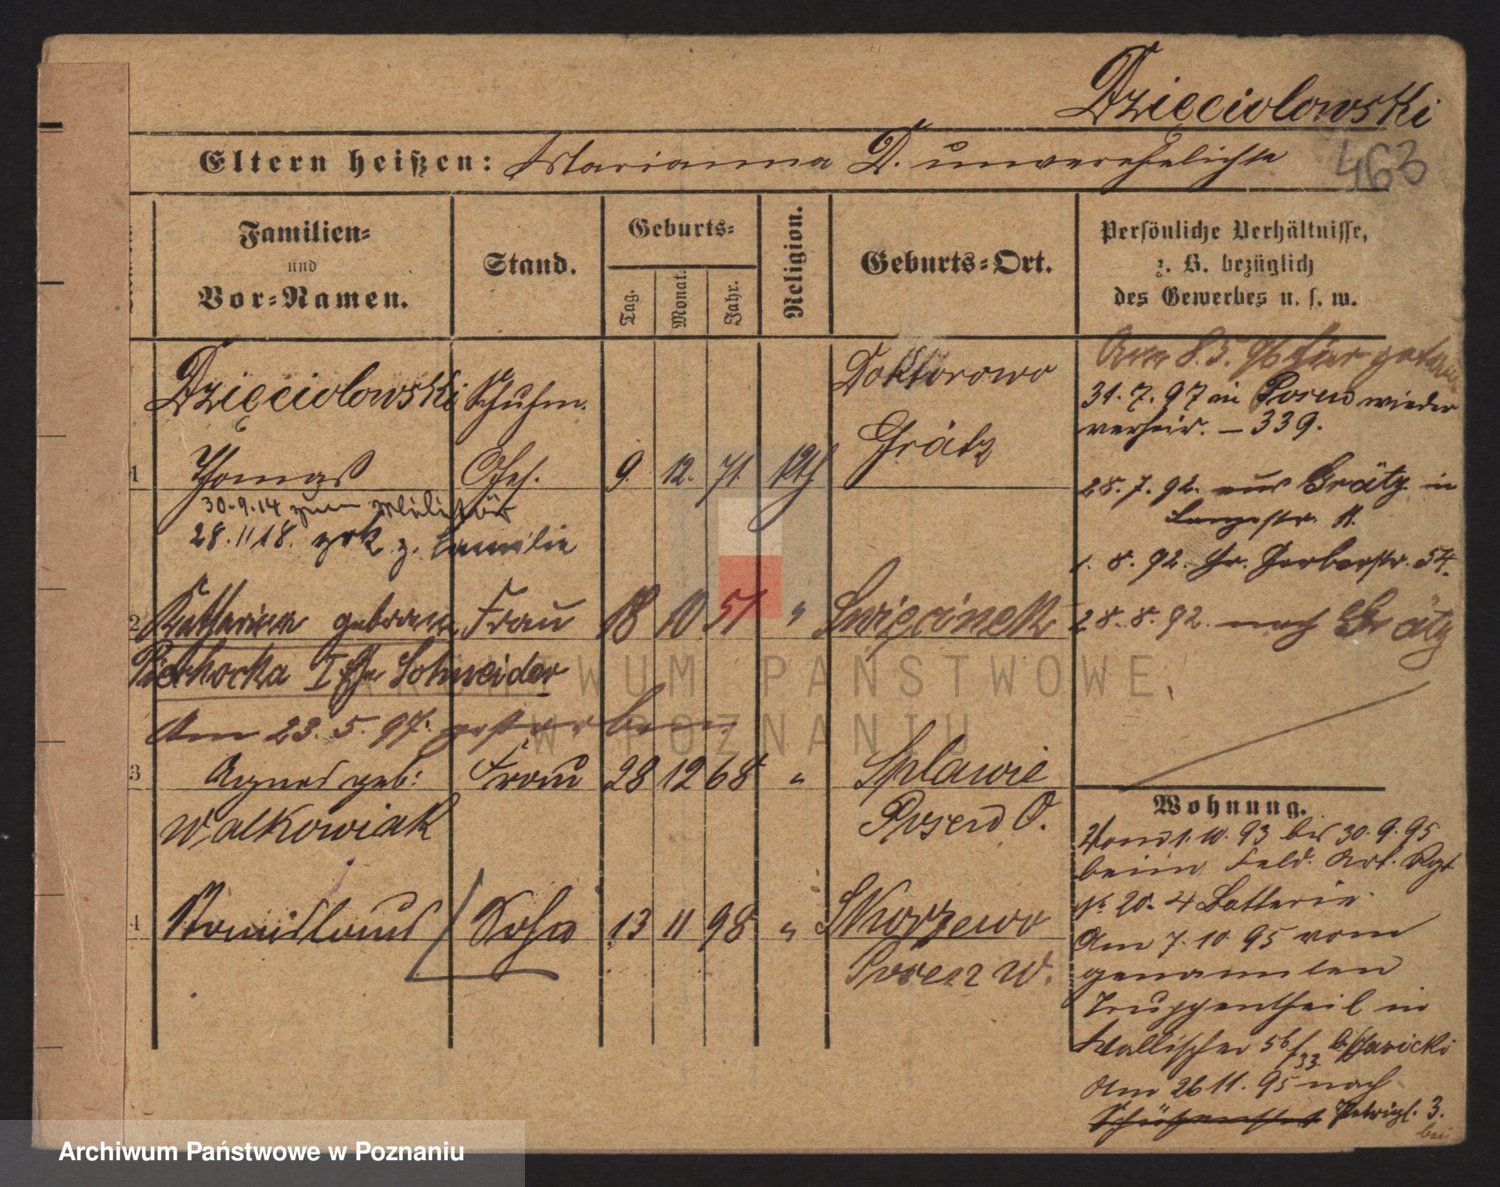 Dzięciolowski
Eltern heißen: Marianna D. unverehelichte
463
Familien=
und
Vor=Namen.
Stand.
Geburts=
Tag.
Monat.
Jahr.
Religion.
Geburts=Ort.
Persönliche Verhältnisse,
z. B. bezüglich
des Gewerbes u. s. w.
Dzięciolowski Schuhm. Doktorowo
Grätz
1 Thomas Ges. 9. 12. 71. kth
30.9.14 zum Militär
28.11 18. zrk z. Familie
2 Katharina Frau 18 10 51 " Święcinek
I Ehe Schneider
Am 23.5.97. gestorben
3 Agnes geb: Frau 28 12 68 " Splawie
Walkowiak Posen O.
4 Romislaus Sohn 13 11 98 " Skorzewo
Posen W.
Am 8.5.96 hier
31.7.97 in Posen wieder
verheir. — 339.
28.7.92. aus Grätz in
Langestr. 11.
1.8.92. Gr. Gerberstr. 54.
28.8.92. nach Grätz
Wohnung.
Vom 1.10.93 bis 30.9.95
beim Feld. Art. Rgt
No 20. 4 Batterie
Am 7.10.95 vom
genannten
Truppentheil in
Wallischei 56/33 b/
Am 26 11.95 nach
Schützenstr Petripl. 3.
ARCHIWUM PAŃSTWOWE
W POZNANIU
Archiwum Państwowe w Poznaniu